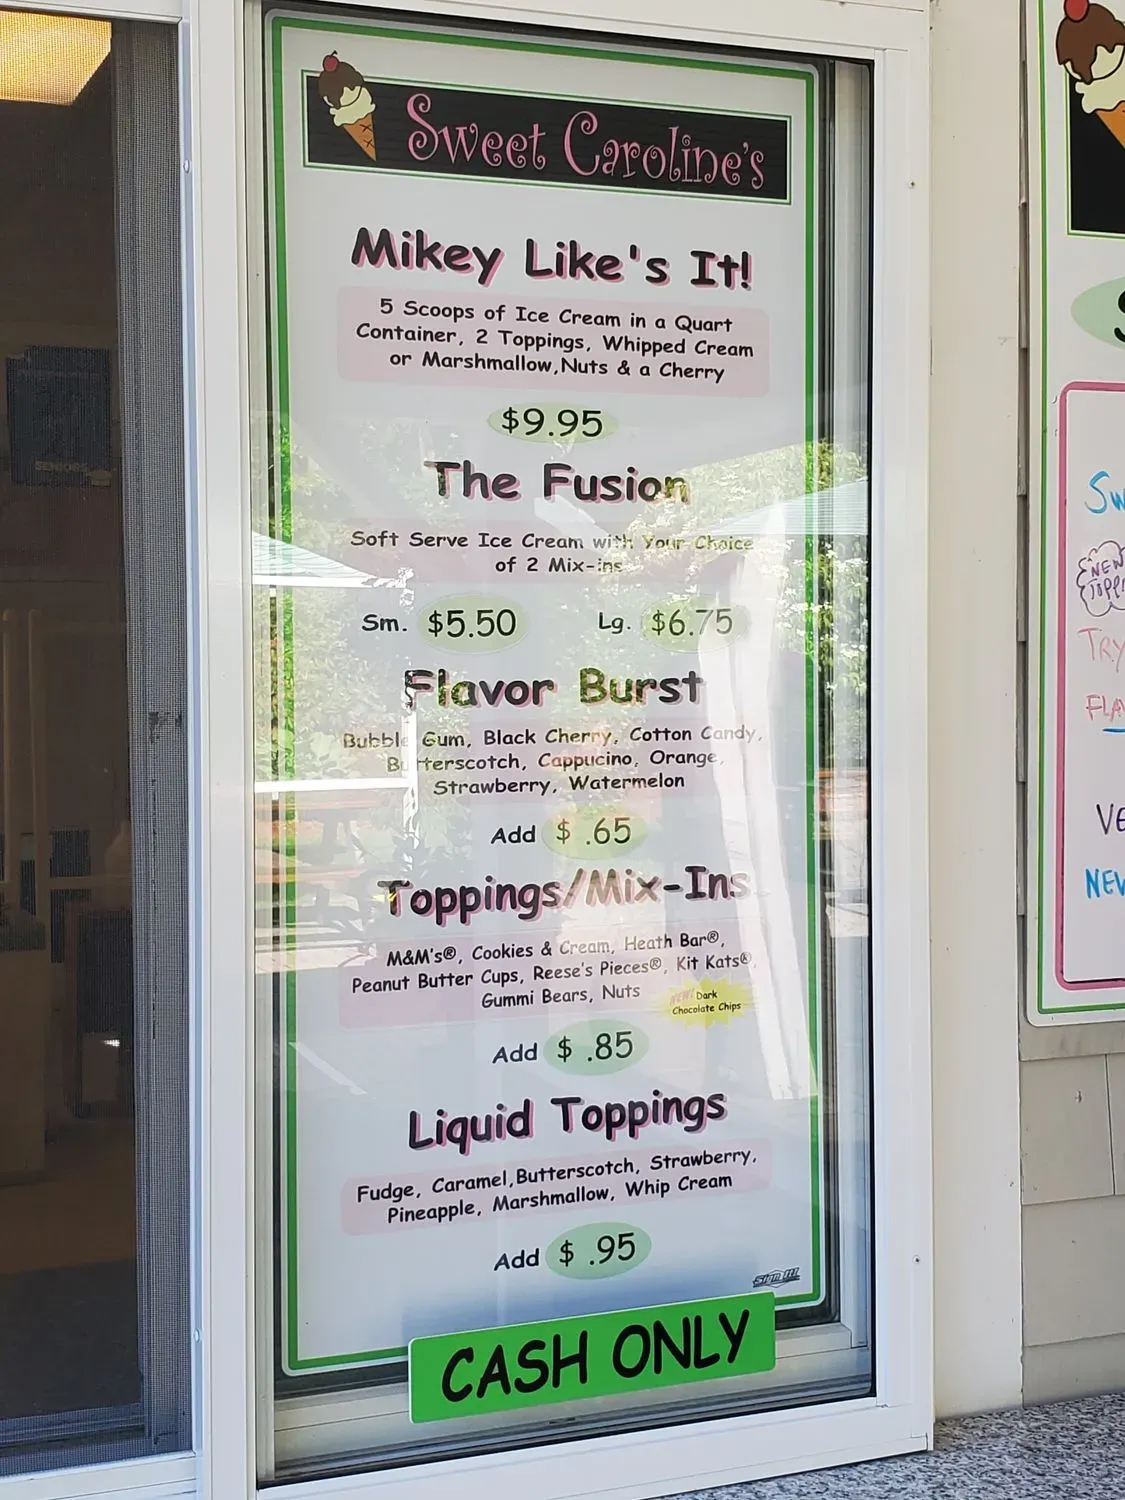 Sweet Caroline's
Mikey Like's It!
5 Scoops of Ice Cream in a Quart
Container, 2 Toppings, Whipped Cream
or Marshmallow,Nuts & a Cherry
$9.95
The Fusion
Soft Serve Ice Cream with Your Choice
of 2 Mix-ins
Sm. $5.50 Lg. $6.75
Flavor Burst
Bubble Gum, Black Cherry, Cotton Candy,
Butterscotch, Cappucino, Orange,
Strawberry, Watermelon
Add $ .65
Toppings/Mix-Ins
M&M's®, Cookies & Cream, Heath Bar®,
Peanut Butter Cups, Reese's Pieces®, Kit Kats®,
Gummi Bears, Nuts
NEW! Dark
Chocolate Chips
Add $ .85
Liquid Toppings
Fudge, Caramel,Butterscotch, Strawberry,
Pineapple, Marshmallow, Whip Cream
Add $ .95
CASH ONLY
SENIORS
NEW
TRY